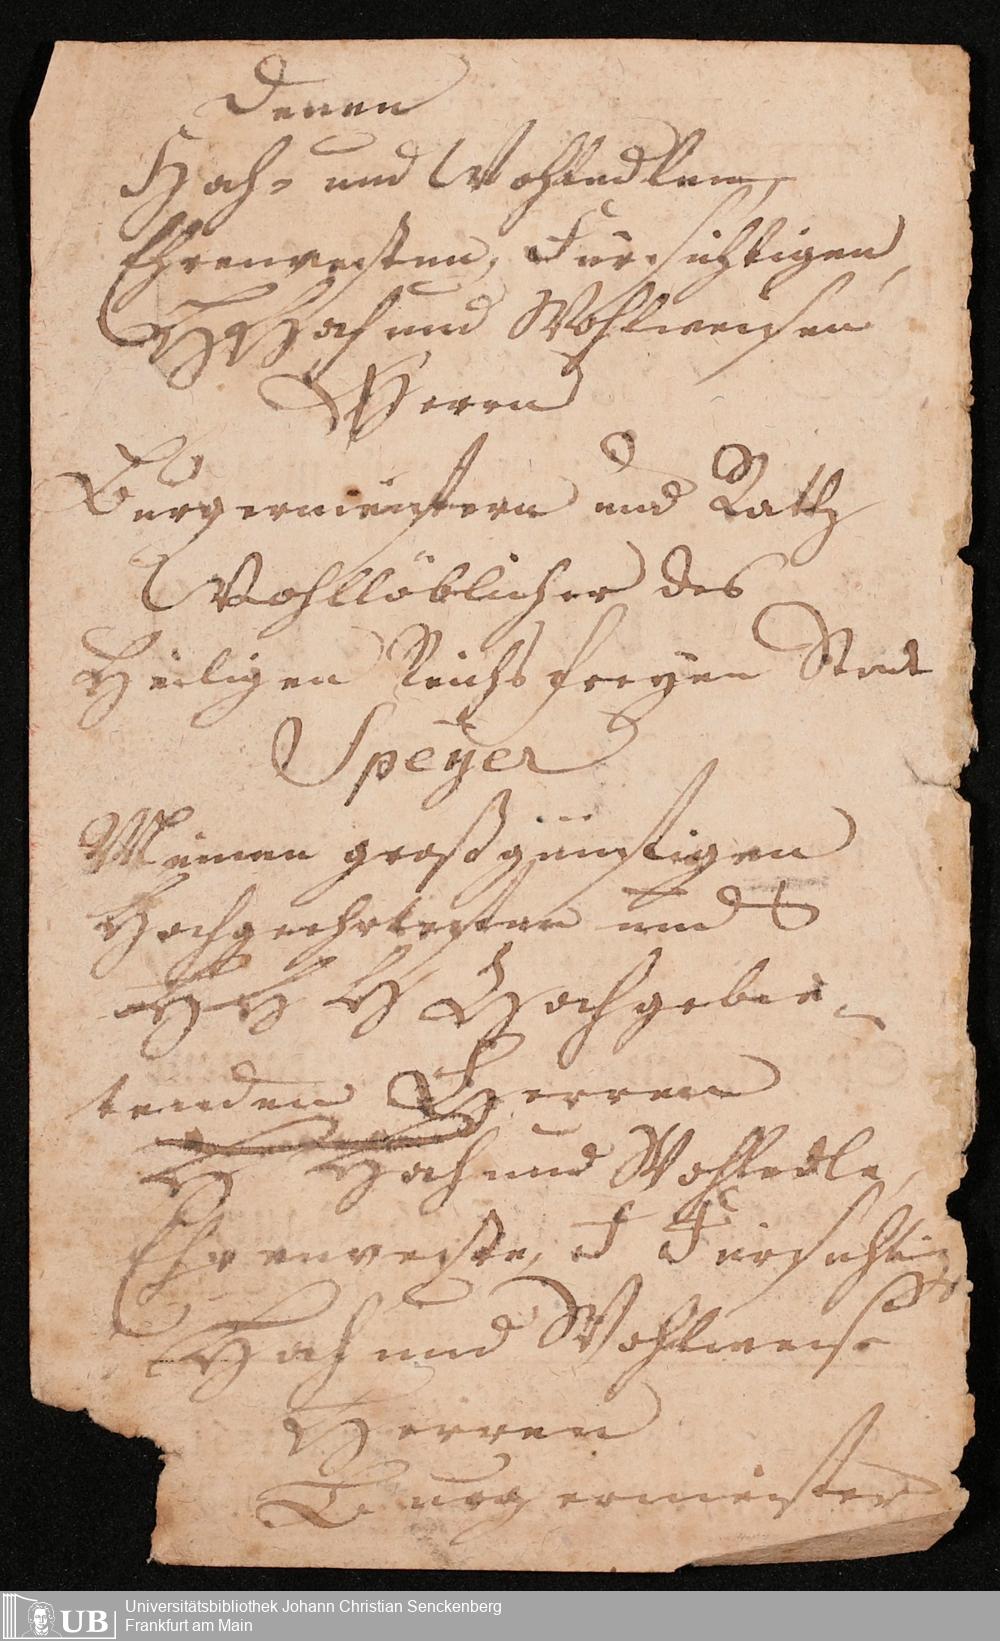 Denen
Hoch- und Wohledlen,
Ehrenvesten, Fürsichtigen,
H Hoch und Wohlweisen
Herrn
Burgermeistern und Rath
Wohllöblicher des
Heiligen Reichs freyen Stadt
Speyer
Meinen großgünstigen
Hochgeehrtesten und
H H H Hochgebie-
tenden Herren
H Hoch und Wohledle,
Ehrenveste, F Fürsichtig
Hoch und Wohlweise
Herren
Burgermeister
UB Universitätsbibliothek Johann Christian Senckenberg
Frankfurt am Main